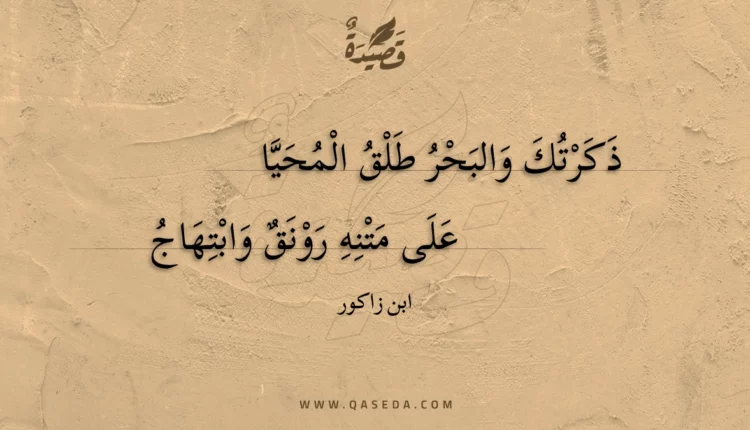 قَصِيْدَةٌ
ذَكَرْتُكَ وَالبَحْرُ طَلْقُ الْمُحَيَّا
عَلَى مَتْنِهِ رَوْنَقٌ وَابْتِهَاجُ
ابن زاكور
WWW.QASEDA.COM